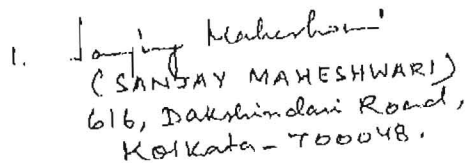 1. Sanjay Maheshwari
(SANJAY MAHESHWARI)
616, Dakshindari Road,
Kolkata - 700048.